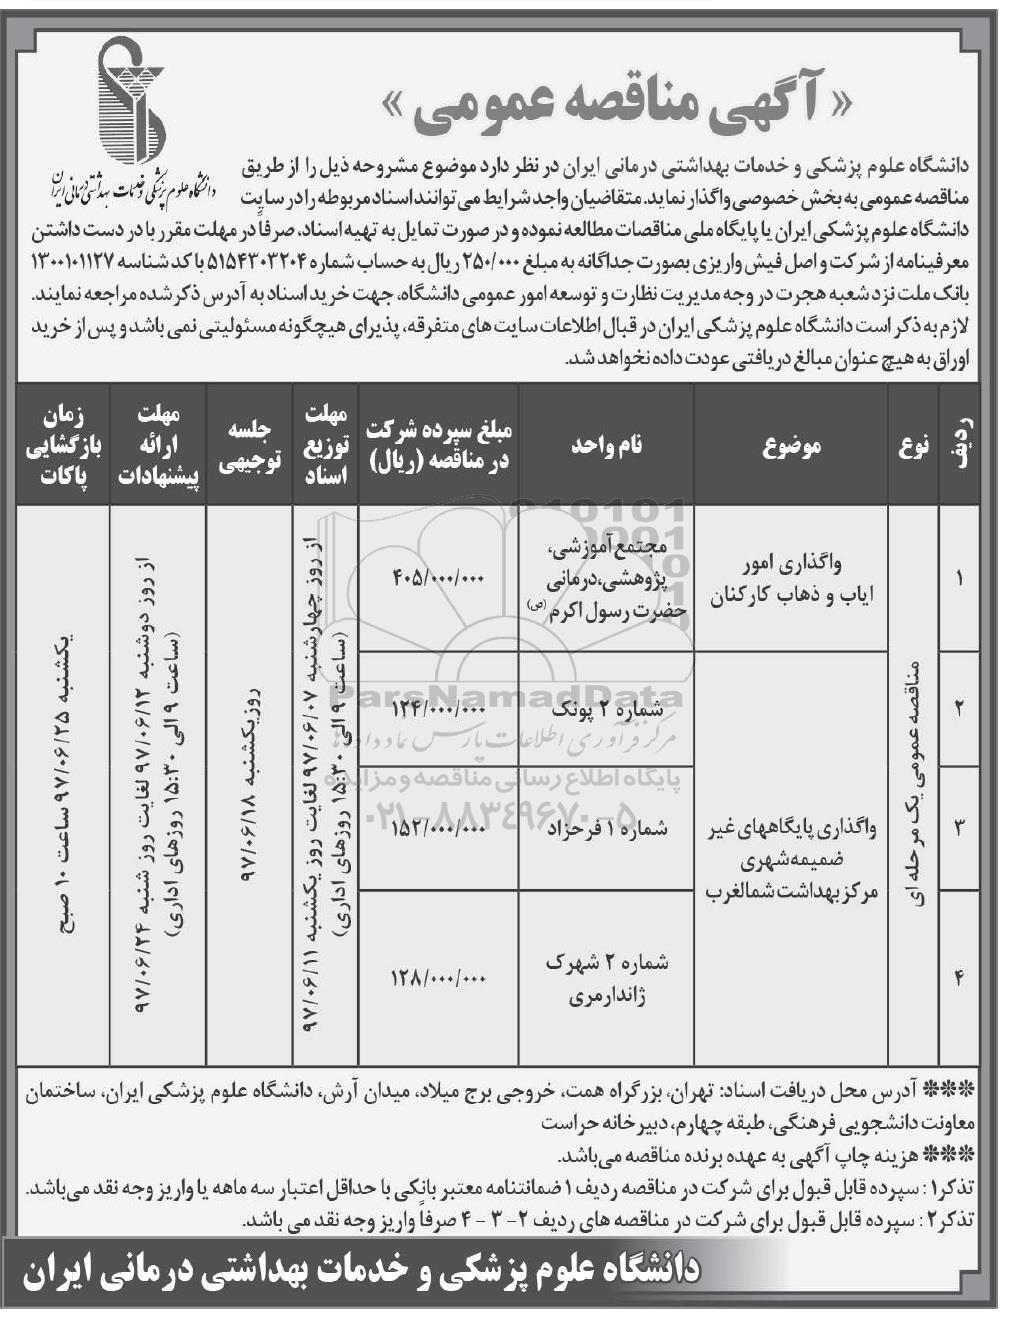 « آگهی مناقصه عمومی »
دانشگاه علوم پزشکی و خدمات بهداشتی درمانی ایران
دانشگاه علوم پزشکی و خدمات بهداشتی درمانی ایران در نظر دارد موضوع مشروحه ذیل را از طریق
مناقصه عمومی به بخش خصوصی واگذار نماید. متقاضیان واجد شرایط می توانند اسناد مربوطه را در سایت
دانشگاه علوم پزشکی ایران یا پایگاه ملی مناقصات مطالعه نموده و در صورت تمایل به تهیه اسناد، صرفاً در مهلت مقرر با در دست داشتن
معرفینامه از شرکت و اصل فیش واریزی بصورت جداگانه به مبلغ ۲۵۰/۰۰۰ ریال به حساب شماره ۵۱۵۴۳۰۳۲۰۴ با کد شناسه ۱۳۰۰۱۰۱۱۲۷
بانک ملت نزد شعبه هجرت در وجه مدیریت نظارت و توسعه امور عمومی دانشگاه، جهت خرید اسناد به آدرس ذکر شده مراجعه نمایند.
لازم به ذکر است دانشگاه علوم پزشکی ایران در قبال اطلاعات سایت های متفرقه، پذیرای هیچگونه مسئولیتی نمی باشد و پس از خرید
اوراق به هیچ عنوان مبالغ دریافتی عودت داده نخواهد شد.
ردیف
نوع
موضوع
نام واحد
مبلغ سپرده شرکت
در مناقصه (ریال)
مهلت
توزیع
اسناد
جلسه
توجیهی
مهلت
ارائه
پیشنهادات
زمان
بازگشایی
پاکات
۱
مناقصه عمومی یک مرحله ای
واگذاری امور
ایاب و ذهاب کارکنان
مجتمع آموزشی،
پژوهشی، درمانی
حضرت رسول اکرم (ص)
۴۰۵/۰۰۰/۰۰۰
از روز چهارشنبه ۹۷/۰۶/۰۷ لغایت روز یکشنبه ۹۷/۰۶/۱۱
(ساعت ۹ الی ۱۵:۳۰ روزهای اداری)
روز یکشنبه ۹۷/۰۶/۱۸
از روز دوشنبه ۹۷/۰۶/۱۲ لغایت روز شنبه ۹۷/۰۶/۲۴
(ساعت ۹ الی ۱۵:۳۰ روزهای اداری)
یکشنبه ۹۷/۰۶/۲۵ ساعت ۱۰ صبح
۲
واگذاری پایگاههای غیر
ضمیمه شهری
مرکز بهداشت شمالغرب
شماره ۲ پونک
۱۲۴/۰۰۰/۰۰۰
۳
شماره ۱ فرحزاد
۱۵۲/۰۰۰/۰۰۰
۴
شماره ۲ شهرک
ژاندارمری
۱۲۸/۰۰۰/۰۰۰
ParsNamadData
مرکز فرآوری اطلاعات پارس نماد داده ها
پایگاه اطلاع رسانی مناقصه و مزایده
۰۲۱-۸۸۳۴۹۶۷۰-۵
*** آدرس محل دریافت اسناد: تهران، بزرگراه همت، خروجی برج میلاد، میدان آرش، دانشگاه علوم پزشکی ایران، ساختمان
معاونت دانشجویی فرهنگی، طبقه چهارم، دبیرخانه حراست
*** هزینه چاپ آگهی به عهده برنده مناقصه می‌باشد.
تذکر۱: سپرده قابل قبول برای شرکت در مناقصه ردیف ۱ ضمانتنامه معتبر بانکی با حداقل اعتبار سه ماهه یا واریز وجه نقد می‌باشد.
تذکر۲: سپرده قابل قبول برای شرکت در مناقصه های ردیف ۲ - ۳ - ۴ صرفاً واریز وجه نقد می باشد.
دانشگاه علوم پزشکی و خدمات بهداشتی درمانی ایران